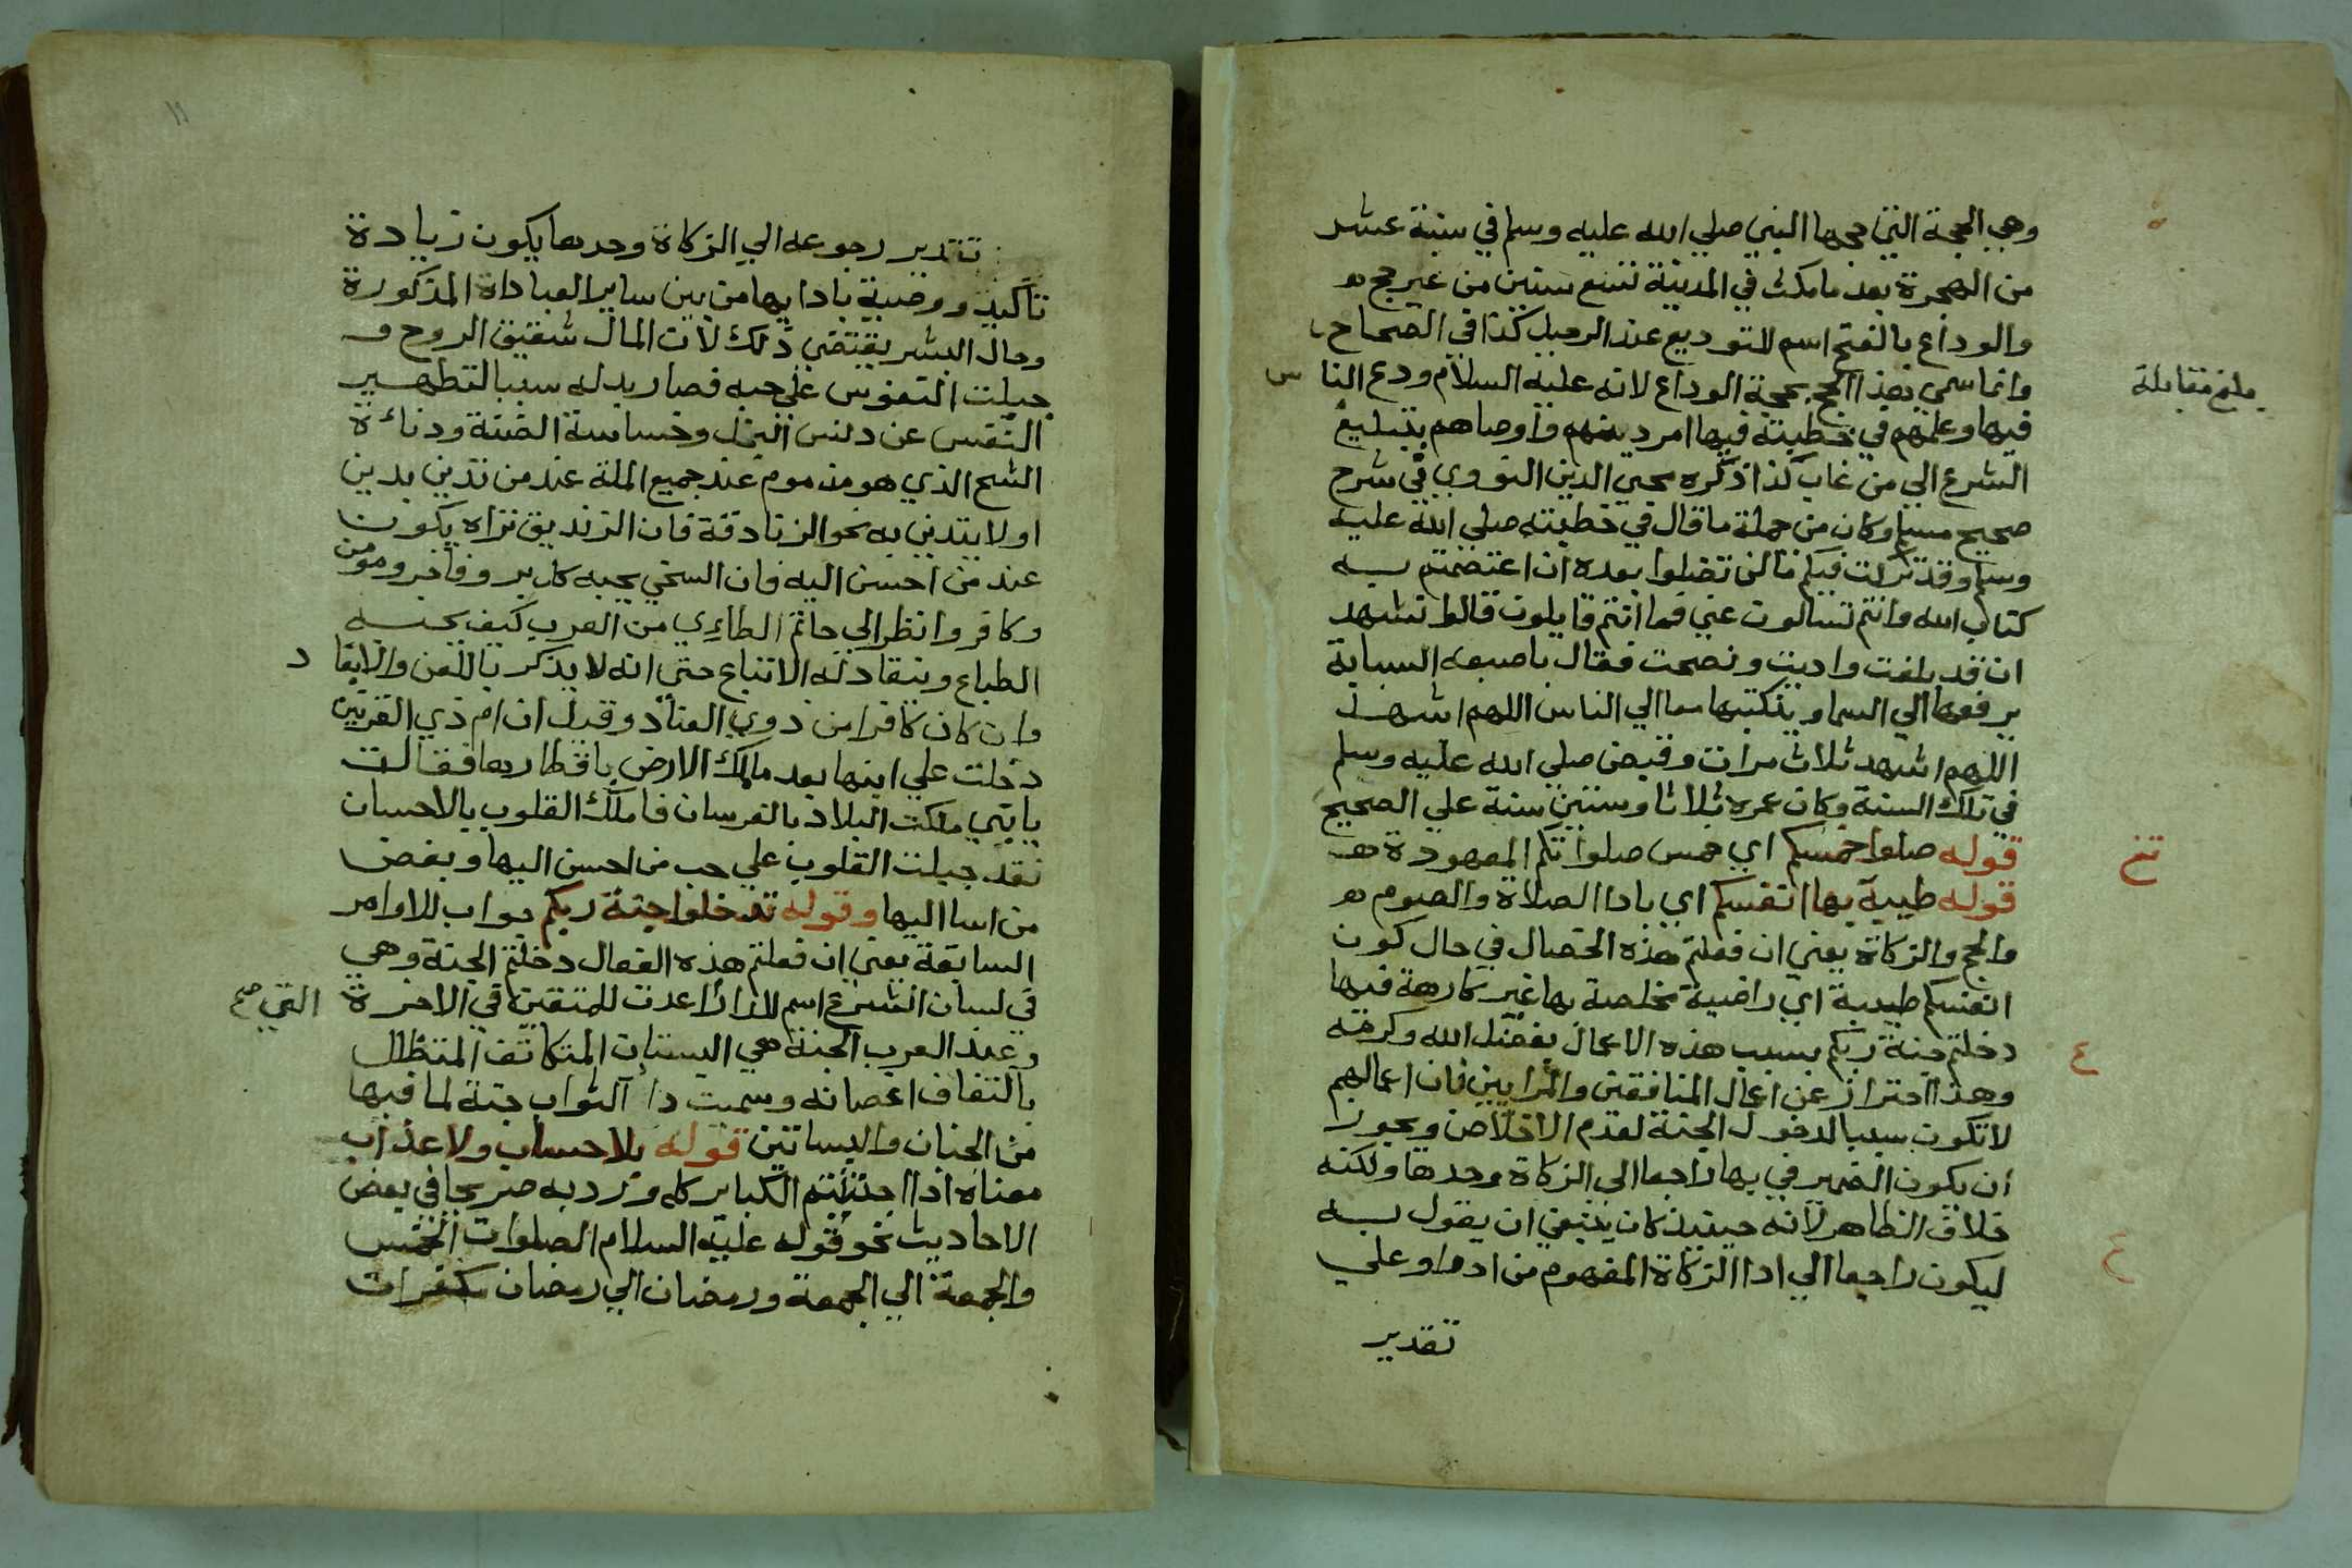 وهي الحجة التي حجها النبي صلي الله عليه وسلم في سنة عشر
من الهجرة بعد ما مكث في المدينة تسع سنين من غير حج
والوداع بالفتح اسم للتوديع عند الرحيل كذا في الصحاح
وانما سمي هذا الحج بحجة الوداع لانه عليه السلام ودع الناس
بلغ مقابلة
فيها وعلمهم في خطبته فيها امر دينهم واوصاهم بتبليغ
الشرع الي من غاب كذا ذكره محيي الدين النووي في شرح
صحيح مسلم وكان من جملة ما قال في خطبته صلي الله عليه
وسلم وقد تركت فيكم ما لن تضلوا بعده ان اعتصمتم به
كتاب الله وانتم تسالون عني فما انتم قايلون قالوا نشهد
ان قد بلغت واديت ونصحت فقال باصبعه السبابة
يرفعها الي السما وينكتها الي الناس اللهم اشهد
اللهم اشهد ثلاث مرات وقبض صلي الله عليه وسلم
في تلك السنة وكان عمره ثلاثا وستين سنة علي الصحيح
قوله صلوا خمسكم اي خمس صلواتكم المعهودة
قوله طيبة بها انفسكم اي بادا الصلاة والصوم
والحج والزكاة يعني ان فعلتم هذه الخصال في حال كون
انفسكم طيبة اي راضية مخلصة بها غير كارهة فيها
دخلتم جنة ربكم بسبب هذه الاعمال بفضل الله وكرمه
وهذا احتراز عن اعمال المنافقين والمرايين فان اعمالهم
لا تكون سببا لدخول الجنة لعدم الاخلاص ويجوز
ان يكون الضمير في بها راجعا الي الزكاة وحدها ولكنه
خلاف الظاهر لانه حينيذ كان ينبغي ان يقول به
ليكون راجعا الي ادا الزكاة المفهوم من ادوا وعلي
تقدير
١١
تقدير رجوعه الي الزكاة وحدها يكون زيادة
تاكيد ووصية بادايها من بين ساير العباداة المذكورة
وحال البشر يقتضي ذلك لان المال شقيق الروح و
جبلت النفوس علي حبه فصار بدله سببا لتطهير
النفس عن دنس البخل وخساسة الضنة ودناءة
الشح الذي هو مذموم عند جميع الملة عند من تدين بدين
او لا يتدين به نحو الزنادقة فان الزنديق تراه يكون
عند من احسن اليه فان السخي يحبه كل بر وفاجر ومومن
وكافر وانظر الي حاتم الطايي من العرب كيف يحبه
الطباع وينقاد له الاتباع حتي انه لا يذكر باللعن والابعاد
وان كان كافرا من ذوي العناد وقيل ان ام ذي القرنين
دخلت علي ابنها بعد ما ملك الارض باقطارها فقالت
يابني ملكت البلاد بالفرسان فاملك القلوب بالاحسان
فقد جبلت القلوب علي حب من احسن اليها وبغض
من اسا اليها وقوله تدخلوا جنة ربكم جواب للاوامر
السابقة يعني ان فعلتم هذه الفعال دخلتم الجنة وهي
في لسان الشرع اسم للدار اعدت للمتقين في الاخرة التي صح
وعند العرب الجنة هي البستان المتكاثف المتظلل
بالتفاف اغصانه وسميت دار الثواب جنة لما فيها
من الجنان والبساتين قوله بلا حساب ولا عذاب
معناه اذا اجتنبتم الكباير كله ورد به صريحا في بعض
الاحاديث نحو قوله عليه السلام الصلوات الخمس
والجمعة الي الجمعة ورمضان الي رمضان مكفرات